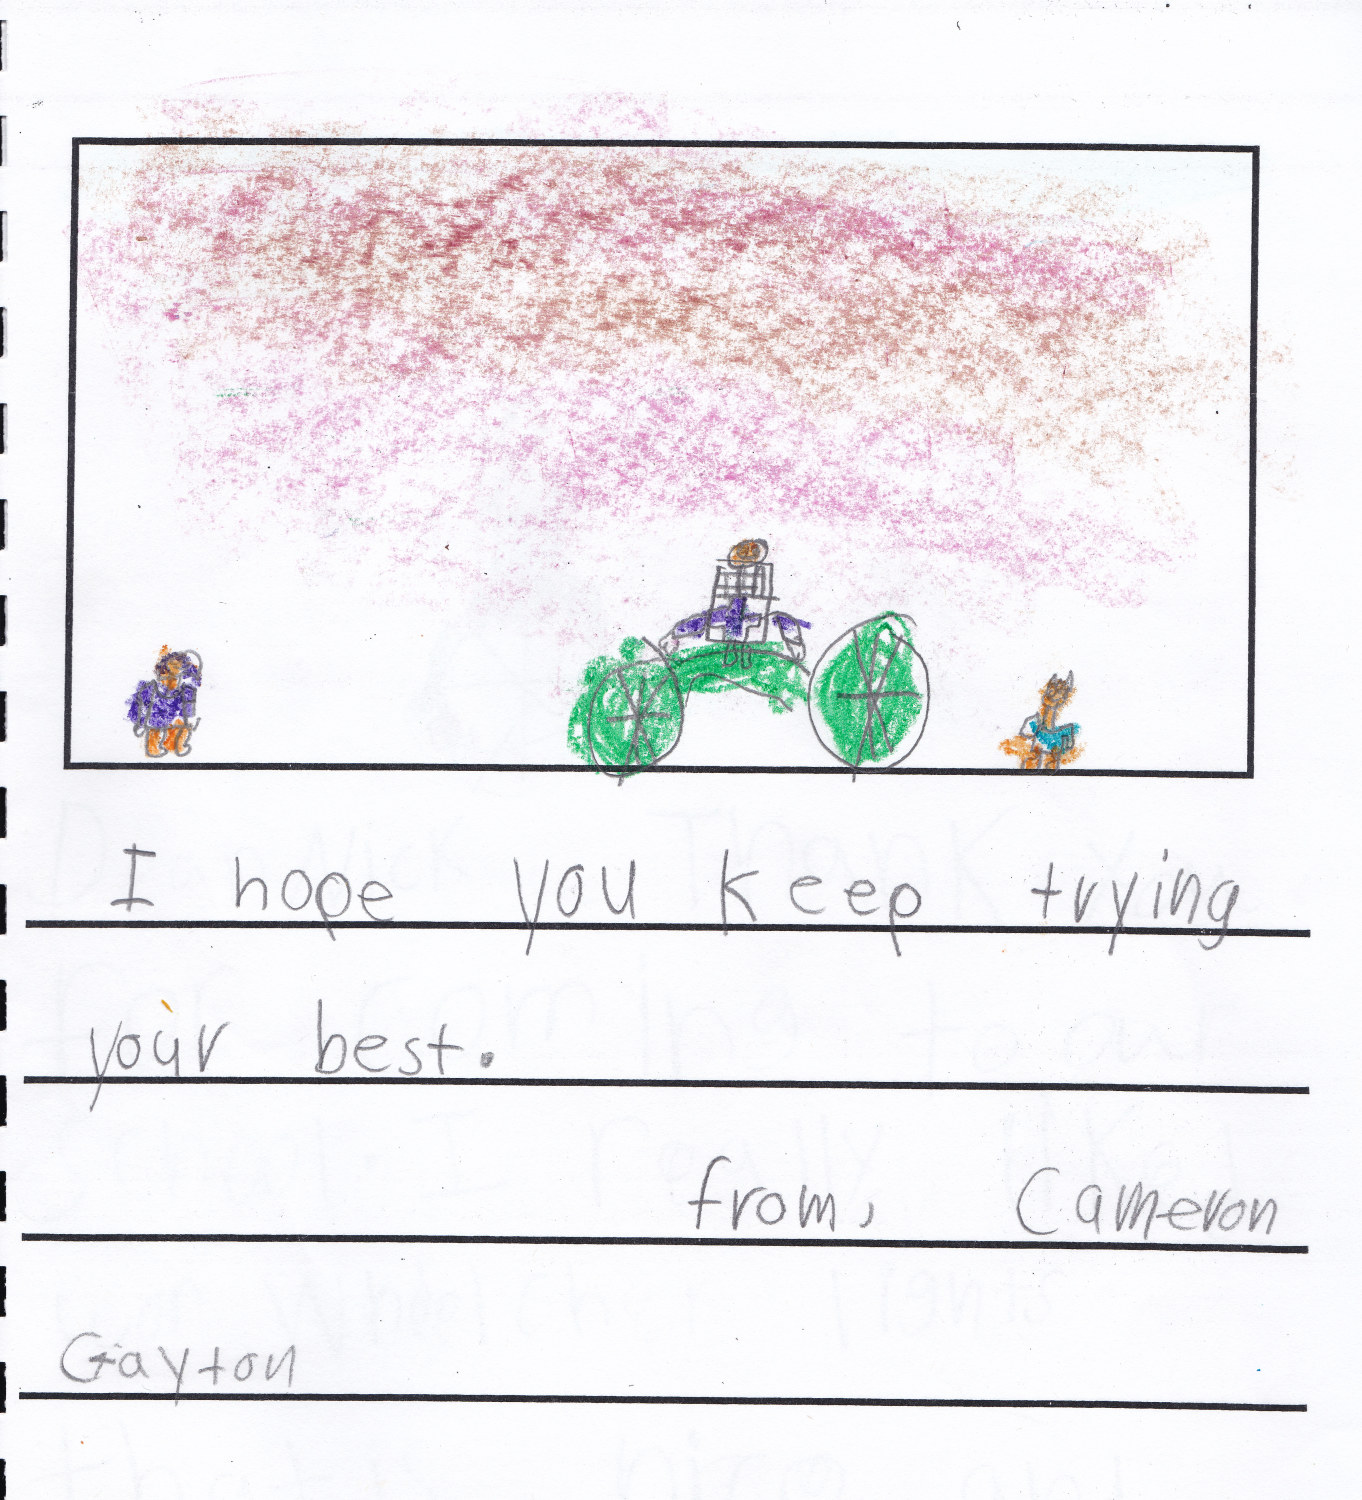 I hope you keep trying
your best.
from, Cameron
Gayton